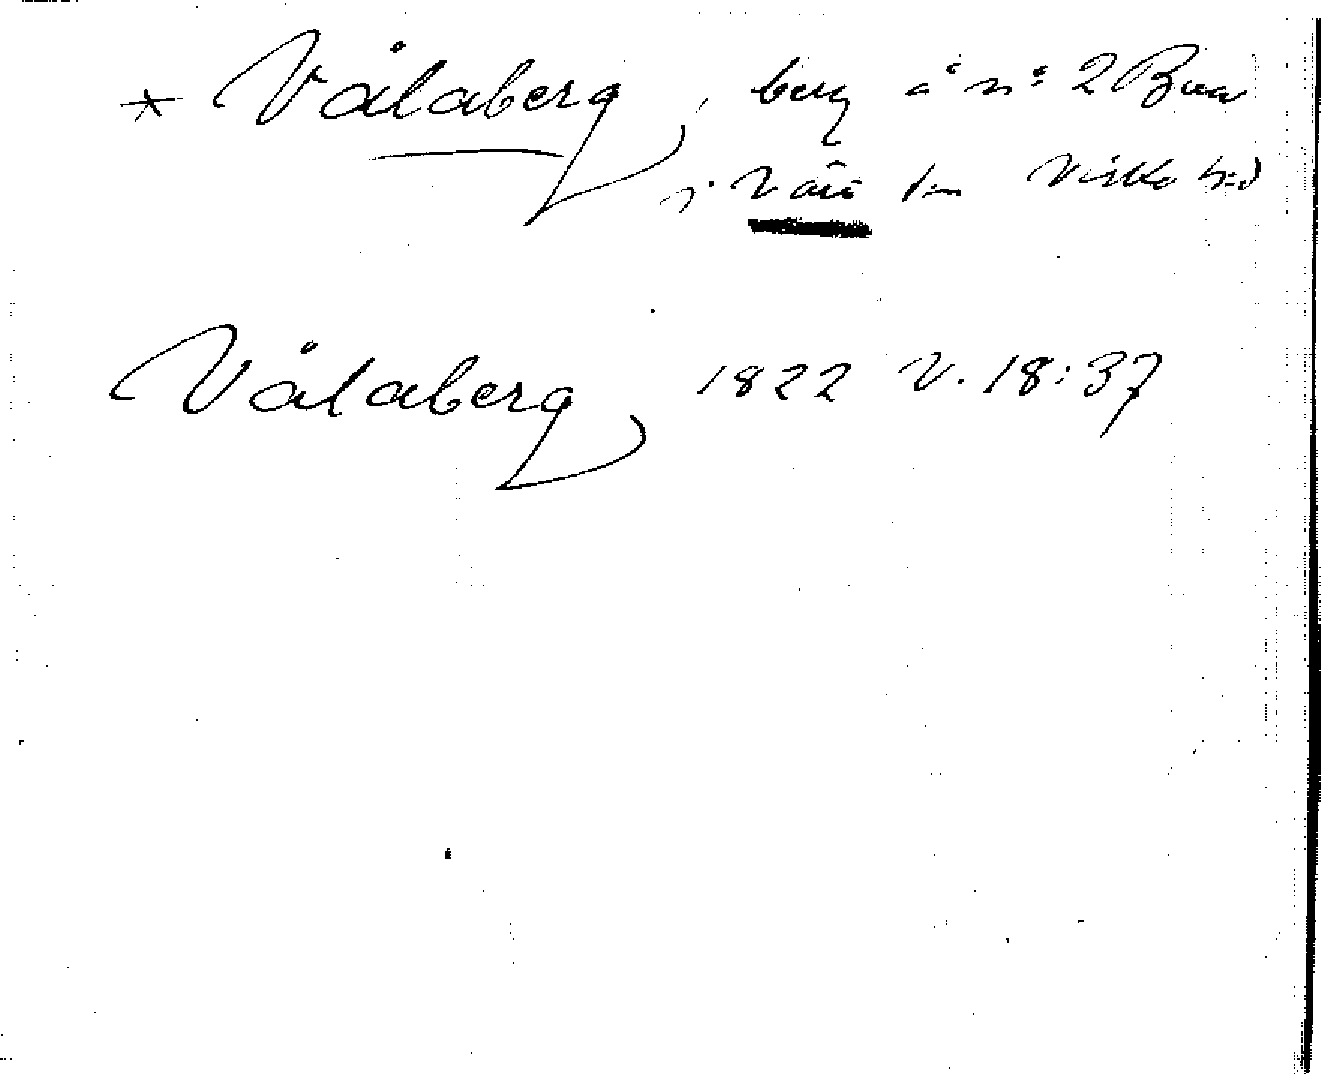 * Vålaberg, berg å nº 2 Bua
i Värö sn Viske hd
Vålaberg 1822 V. 18:37